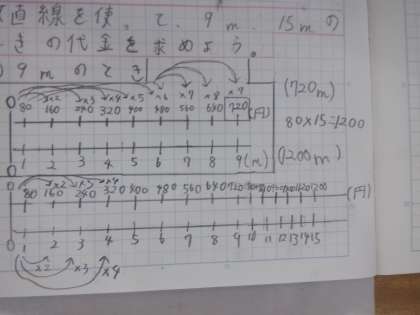 直線を使って、9m、15mの
ときの代金を求めよう。
9mのとき
×2 ×3 ×4 ×5 ×6 ×7 ×8 ×9
0 80 160 240 320 400 480 560 640 720 (円)
0 1 2 3 4 5 6 7 8 9 (m)
(720m)
80×15=1200
(1200m)
×2 ×3 ×4
0 80 160 240 320 400 480 560 640 720 (円)
0 1 2 3 4 5 6 7 8 9 10 11 12 13 14 15
×2 ×3 ×4